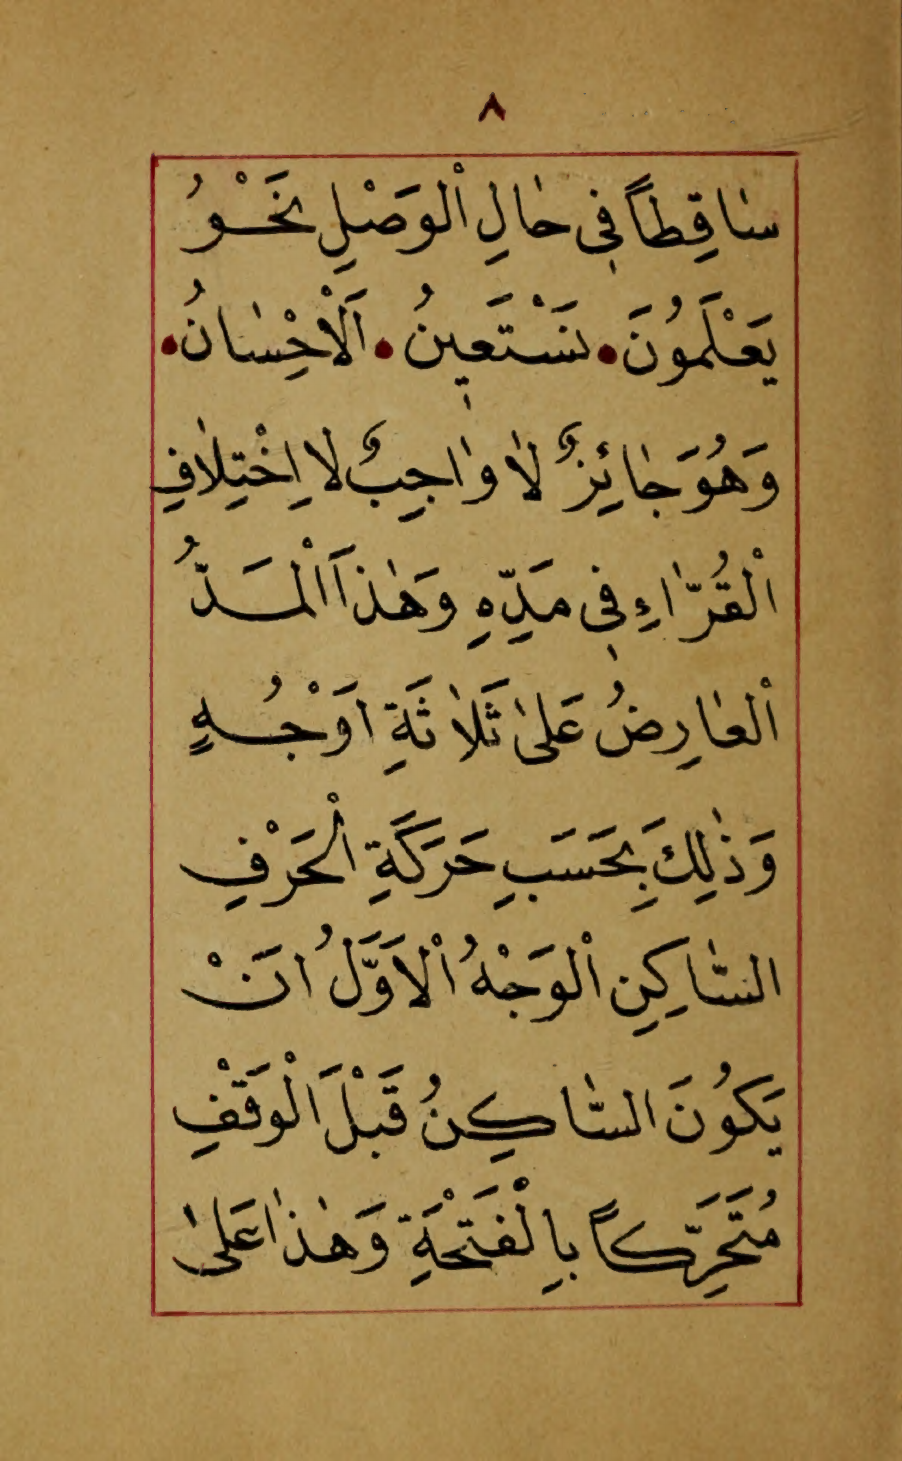 ٨
سَاقِطاً فِى حَالِ الْوَصْلِ نَحْوُ
يَعْلَمُونَ • نَسْتَعِينُ • اَلْاِحْسَانُ •
وَهُوَ جَائِزٌ لَا وَاجِبٌ لِاِخْتِلَافِ
الْقُرَّاءِ فِى مَدِّهِ وَهٰذَا الْمَدُّ
الْعَارِضُ عَلىٰ ثَلَاثَةِ اَوْجُهٍ
وَذٰلِكَ بِحَسَبِ حَرَكَةِ الْحَرْفِ
السَّاكِنِ الْوَجْهُ الْاَوَّلُ اَنْ
يَكُونَ السَّاكِنُ قَبْلَ الْوَقْفِ
مُتَحَرِّكاً بِالْفَتْحَةِ وَهٰذَا عَلىٰ